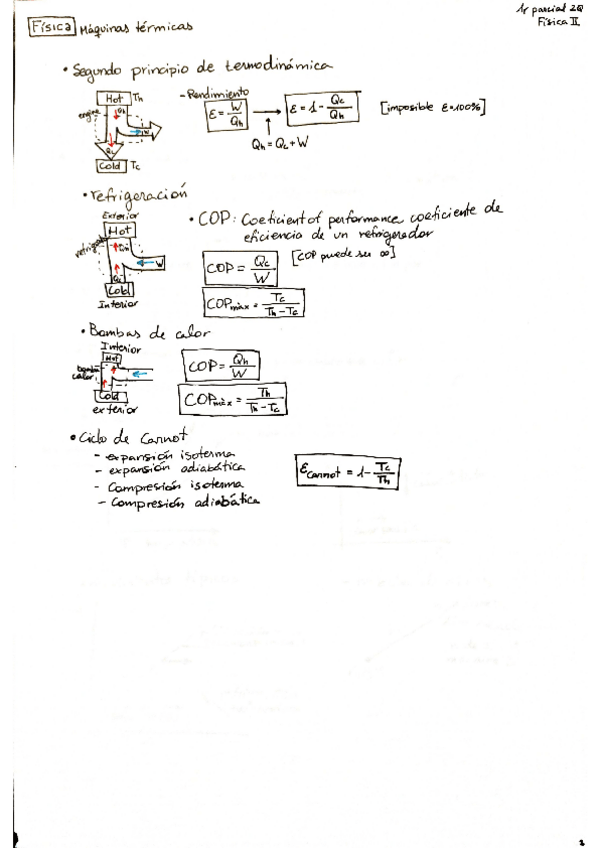 1r parcial 2Q
Física II
Física Máquinas térmicas
• Segundo principio de termodinámica
Hot Th
engine Qh
W
Qc
Cold Tc
- Rendimiento
ε = W/Qh → ε = 1 - Qc/Qh [imposible ε=100%]
Qh = Qc + W
• refrigeración
Exterior
Hot
W
Qc
Cold
Interior
• COP: Coefficient of performance coeficiente de
eficiencia de un refrigerador
COP = Qc/W [COP puede ser ∞]
COPmàx = Tc/(Th - Tc)
• Bombas de calor
Interior
Hot
bomba
calor
Cold
exterior
COP = Qh/W
COPmàx = Th/(Th - Tc)
• Ciclo de Carnot
- expansión isoterma
- expansión adiabática
- Compresión isoterma
- Compresión adiabática
εCarnot = 1 - Tc/Th